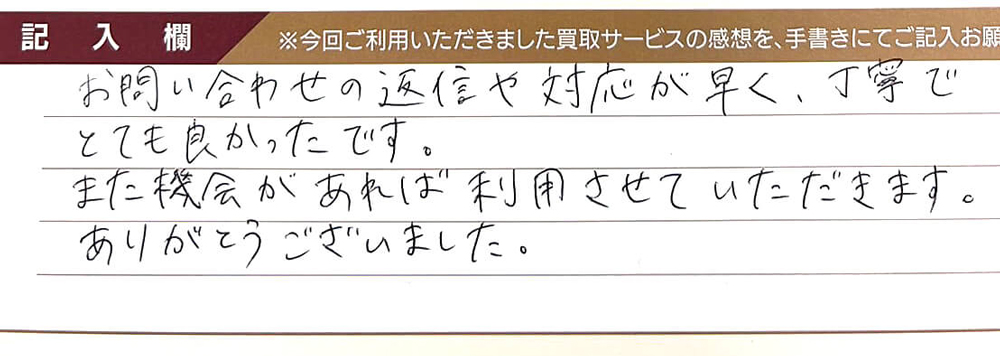 記入欄 ※今回ご利用いただきました買取サービスの感想を、手書きにてご記入お願
お問い合わせの返信や対応が早く、丁寧で
とても良かったです。
また機会があれば利用させていただきます。
ありがとうございました。